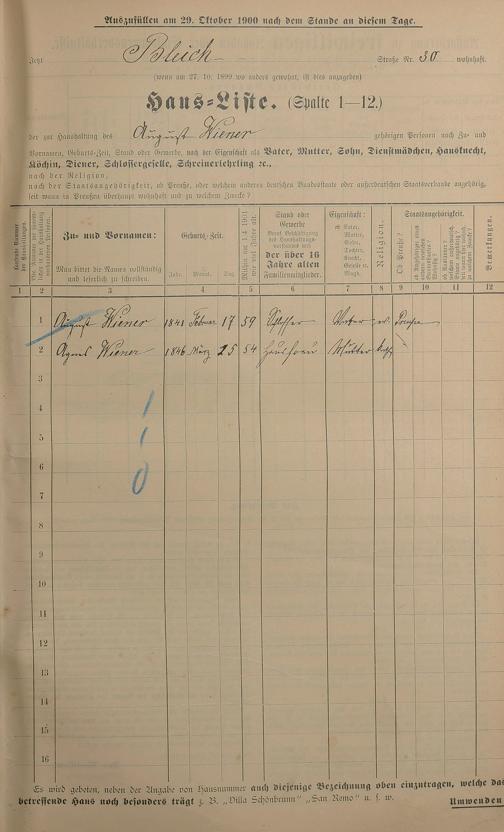 Auszufüllen am 29. Oktober 1900 nach dem Stande an diesem Tage.
Jetzt Bleich Straße Nr. 30 wohnhaft.
(wenn am 27. 10. 1899 wo anders gewohnt, ist dies anzugeben)
Haus-Liste. (Spalte 1—12.)
der zur Haushaltung des August Wiener gehörigen Personen nach Zu- und
Vornamen, Geburts-Zeit, Stand oder Gewerbe, nach der Eigenschaft als Vater, Mutter, Sohn, Dienstmädchen, Hausknecht,
Köchin, Diener, Schlossergeselle, Schreinerlehrling ꝛc.,
nach der Religion,
nach der Staatsangehörigkeit, ob Preuße, oder welchem anderen deutschen Bundesstaate oder außerdeutschen Staatsverbande angehörig,
seit wann in Preußen überhaupt wohnhaft und zu welchem Zwecke?
Zu- und Vornamen:
Man bittet die Namen vollständig
und leserlich zu schreiben.
Geburts-Zeit.
Jahr. Monat. Tag.
Stand oder
Gewerbe
der über 16
Jahre alten
Familienmitglieder.
Eigenschaft:
ob Vater,
Mutter,
Sohn,
Tochter,
Knecht,
Geselle u.
Magd.
Religion.
Staatsangehörigkeit.
Ob Preuße?
Bemerkungen.
1 2 3 4 5 6 7 8 9 10 11 12
1 August Wiener 1841 Februar 17 59 Schlosser Vater ev. Preuße
2 Agnes Wiener 1846 März 25 54 Hausfrau Mutter kath
3
4
5
6
7
8
9
10
11
12
13
14
15
16
1
1
0
Es wird geboten, neben der Angabe von Hausnummer auch diejenige Bezeichnung oben einzutragen, welche das
betreffende Haus noch besonders trägt z. B. „Villa Schönbrunn" „San Remo" u. s. w.
Umwenden